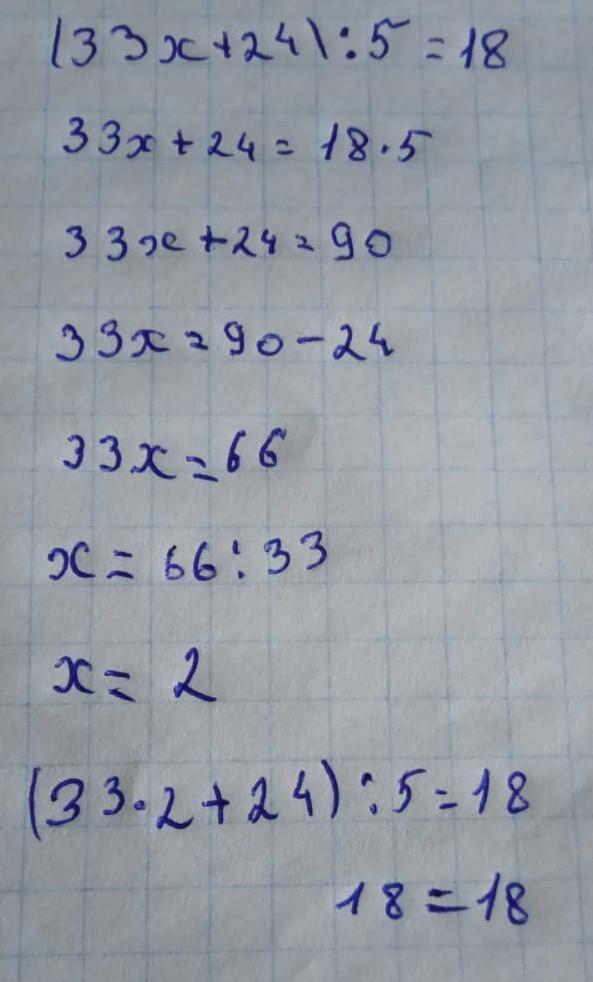 (33x+24):5=18
33x+24=18·5
33x+24=90
33x=90-24
33x=66
x=66:33
x=2
(33·2+24):5=18
18=18